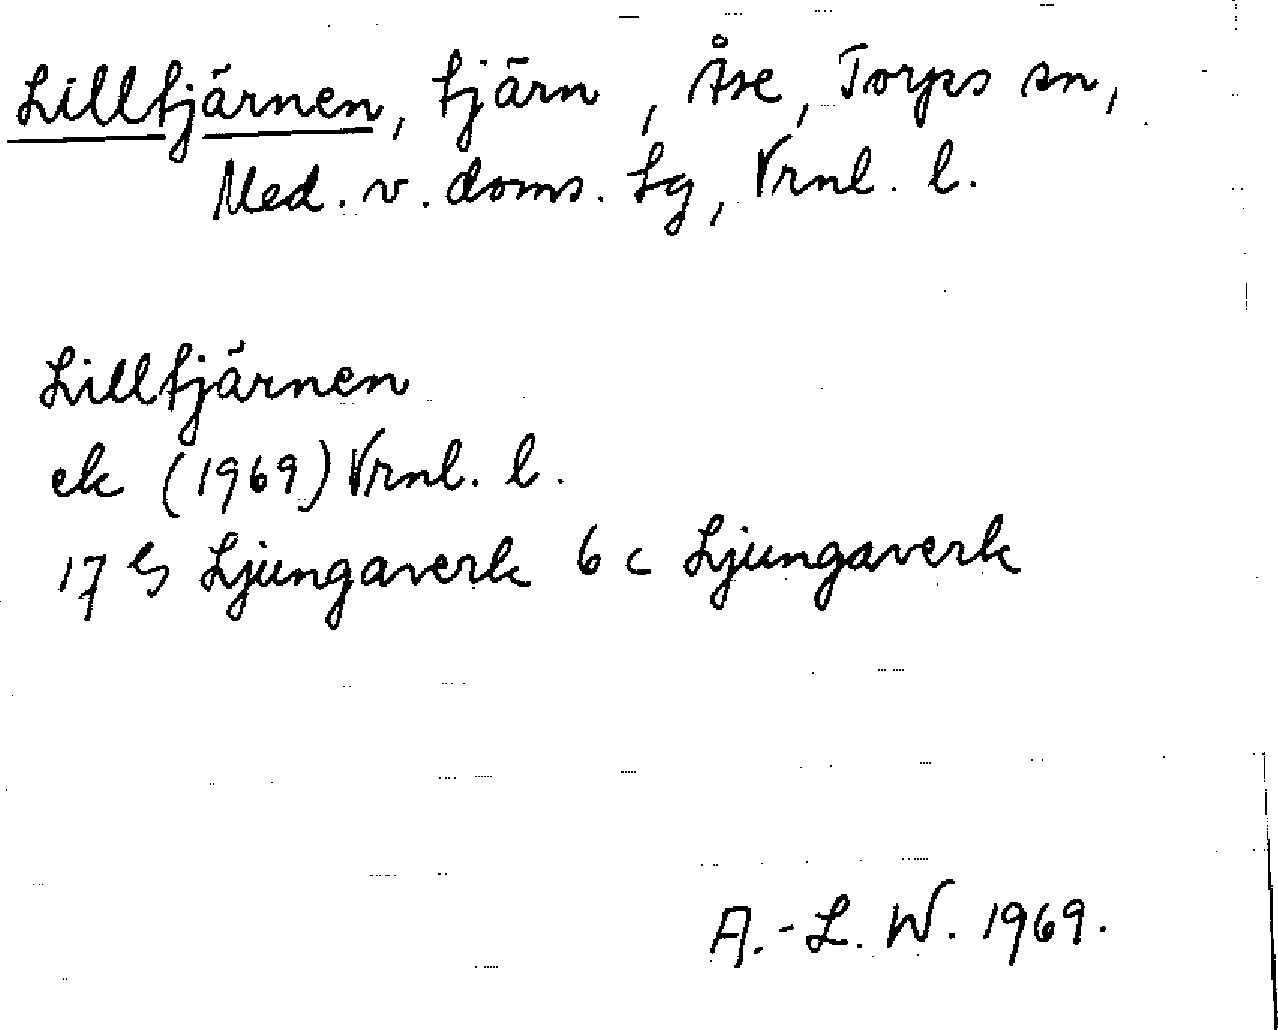 Lilltjärnen, tjärn, Åse, Torps sn,
Med. v. doms. Lg, Vrnl. l.
Lilltjärnen
ek (1969) Vrnl. l.
17 G Ljungaverk 6 c Ljungaverk
A.-L. W. 1969.